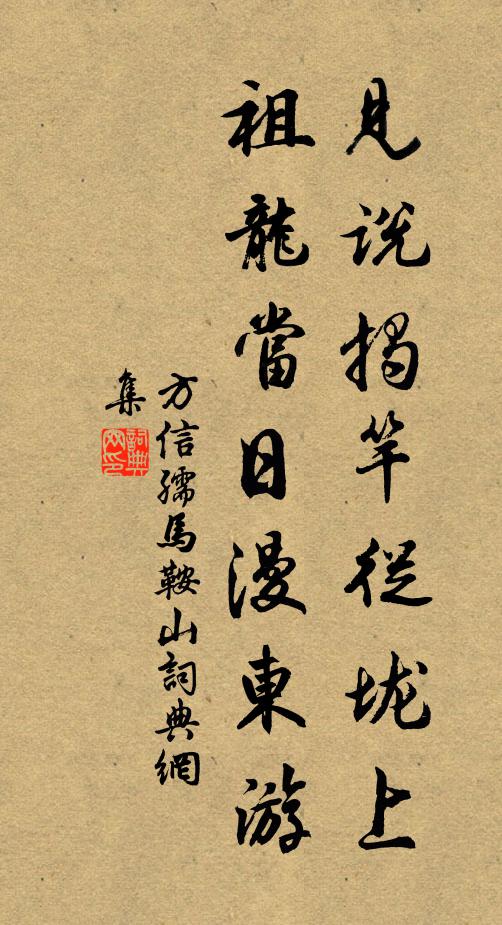 见说揭竿從垅上
祖龍當日漫東游
方信孺馬鞍山詞典網
集
詞典網印